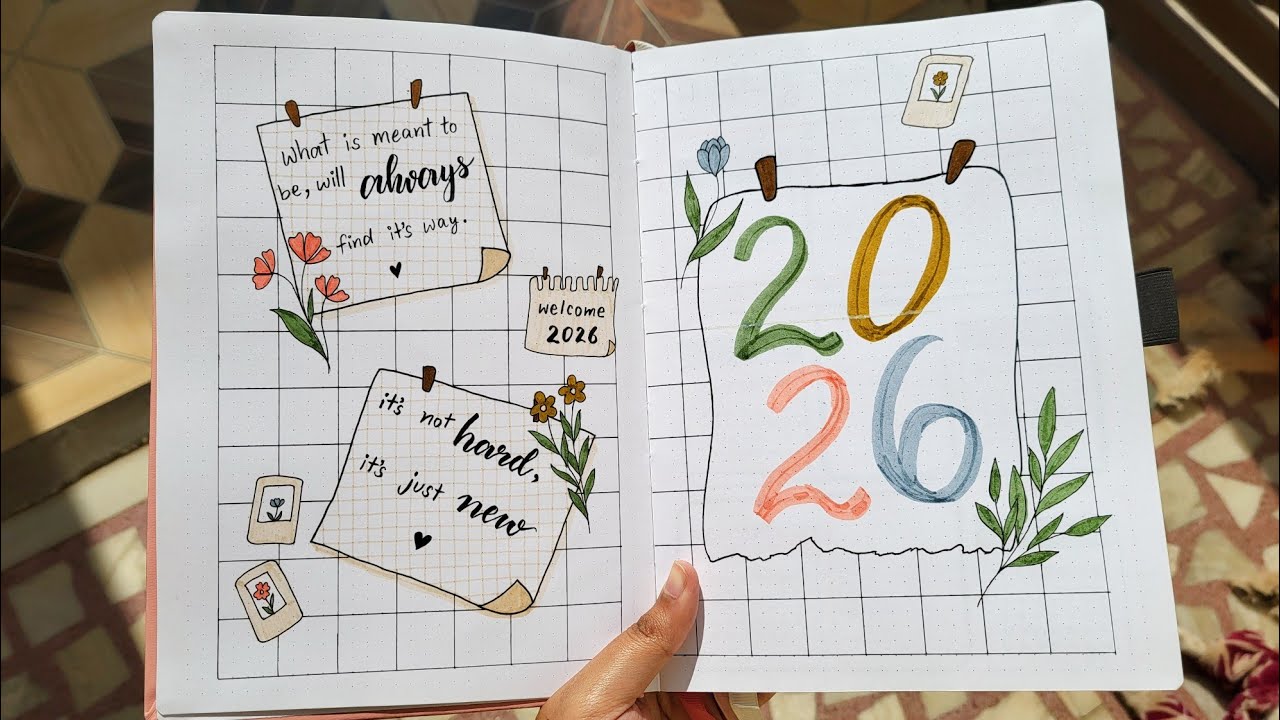 What is meant to
be, will always
find it's way.
welcome
2026
it's not hard,
it's just new
20
26